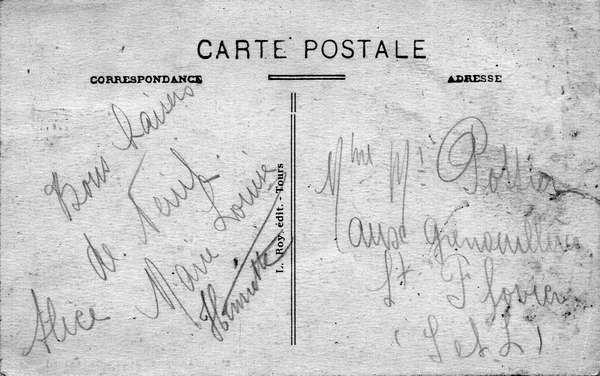 CARTE POSTALE
CORRESPONDANCE
ADRESSE
Bons baisers
de Neuil
Alice Marie Louise
Henriette
L. Roy, édit. - Tours
Mme Mlle Pottier
aux Grenouillères
St Flovier
(I et L)